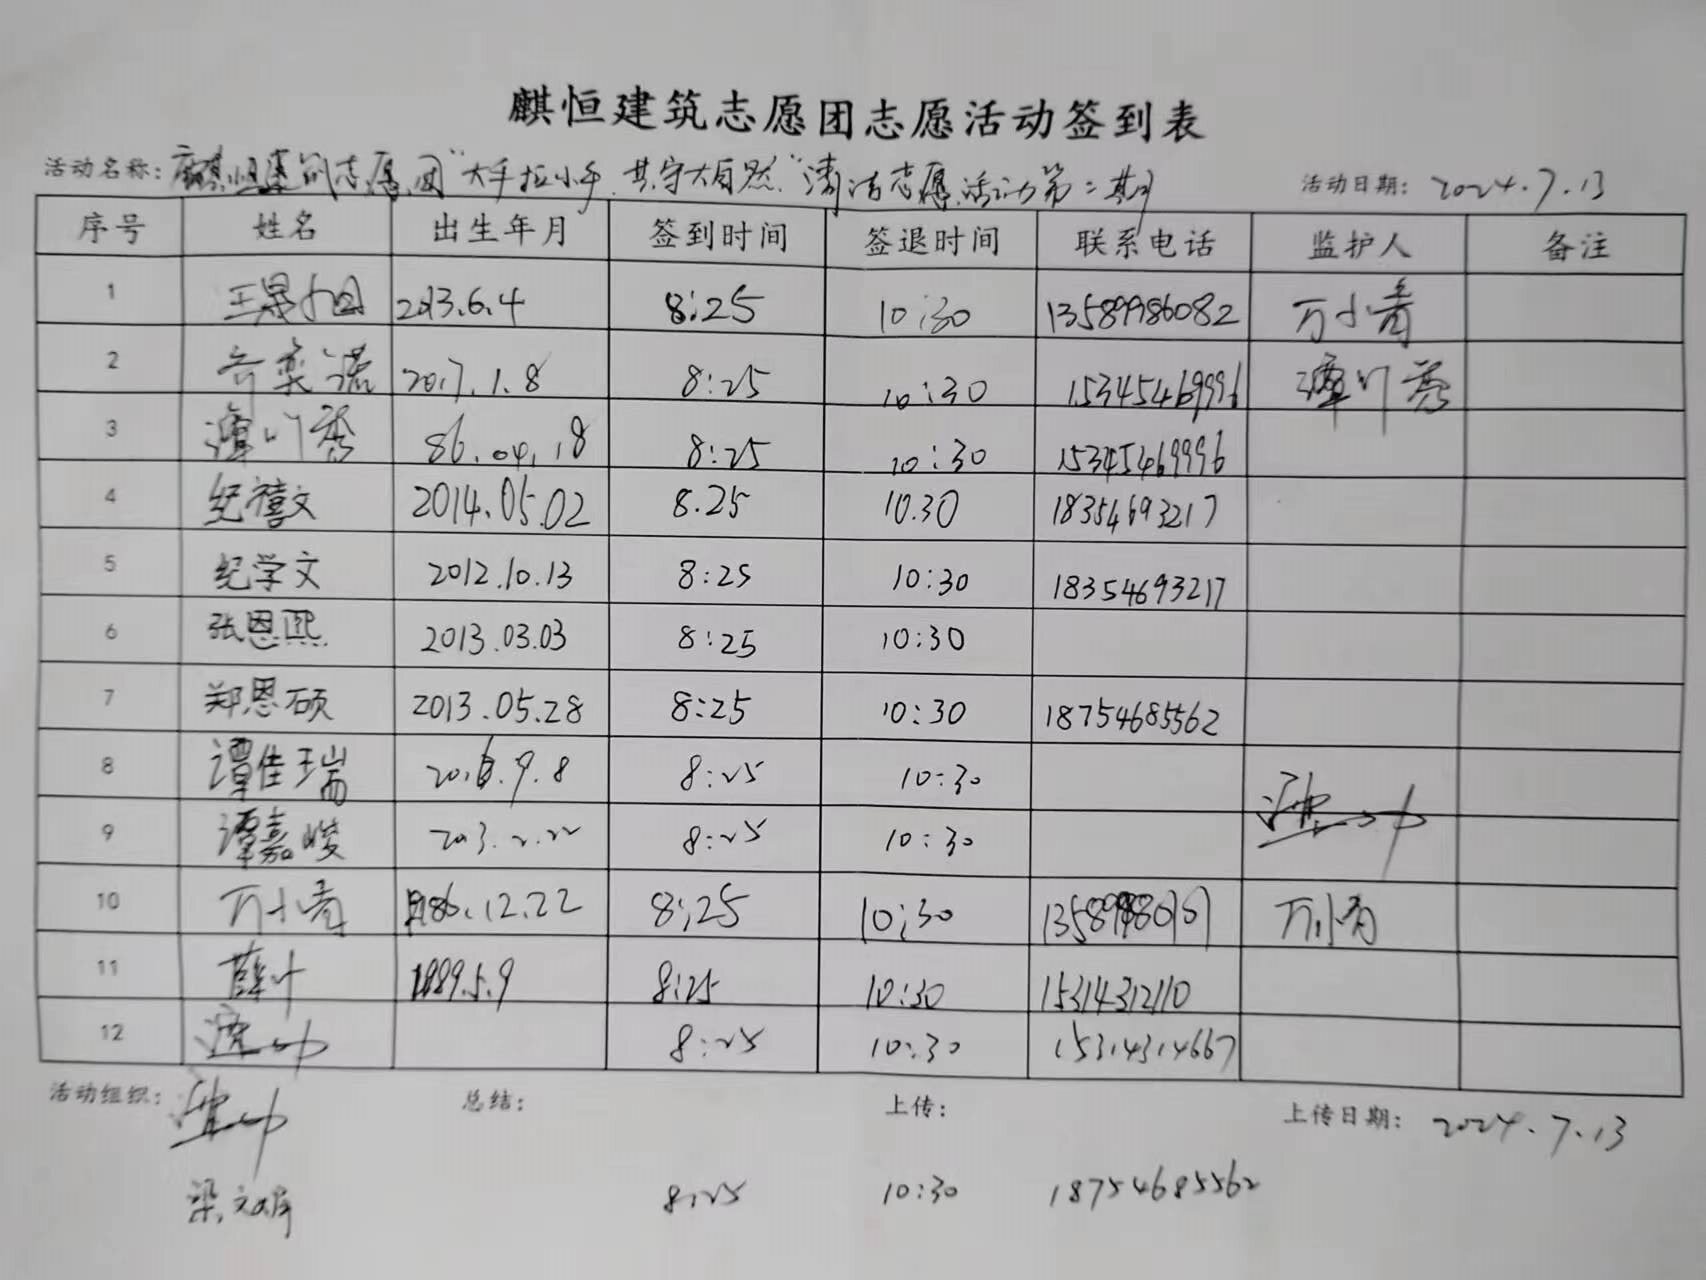 麒恒建筑志愿团志愿活动签到表
活动名称：麒恒建筑志愿团"大手拉小手，共守大自然"清洁志愿活动第二期 活动日期：2024.7.13
序号 姓名 出生年月 签到时间 签退时间 联系电话 监护人 备注
1 王晟旭 2013.6.4 8:25 10:30 13589986082 万小青
2 齐奕诺 2017.1.8 8:25 10:30 15345469996 谭川秀
3 谭川秀 86.04.18 8:25 10:30 15345469996
4 纪禧文 2014.05.02 8.25 10.30 18354693217
5 纪学文 2012.10.13 8:25 10:30 18354693217
6 张恩熙 2013.03.03 8:25 10:30
7 郑恩硕 2013.05.28 8:25 10:30 18754685562
8 谭佳瑞 2016.9.8 8:25 10:30
9 谭嘉峻 2013.2.22 8:25 10:30
10 万小青 1986.12.22 8:25 10:30 万小青
11 薛叶 1989.5.9 8:25 10:30 15314312110
12 8:25 10:30 15314314667
活动组织： 总结： 上传： 上传日期：2024.7.13
梁 8:25 10:30 18754685562